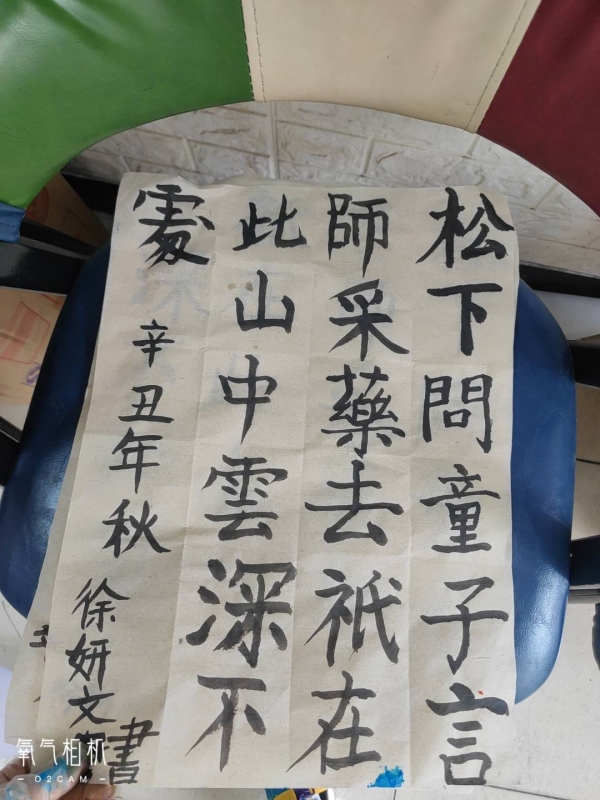 松下問童子言
師采藥去祇在
此山中雲深不
處
辛丑年秋
徐妍文
書
氧气相机
— O2CAM —